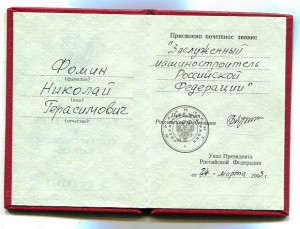 Фомин
(фамилия)
Николай
(имя)
Герасимович
(отчество)
Присвоено почетное звание
"Заслуженный
машиностроитель
Российской
Федерации"
Президент
Российской Федерации
Указ Президента
Российской Федерации
от 24 марта 2003 г.